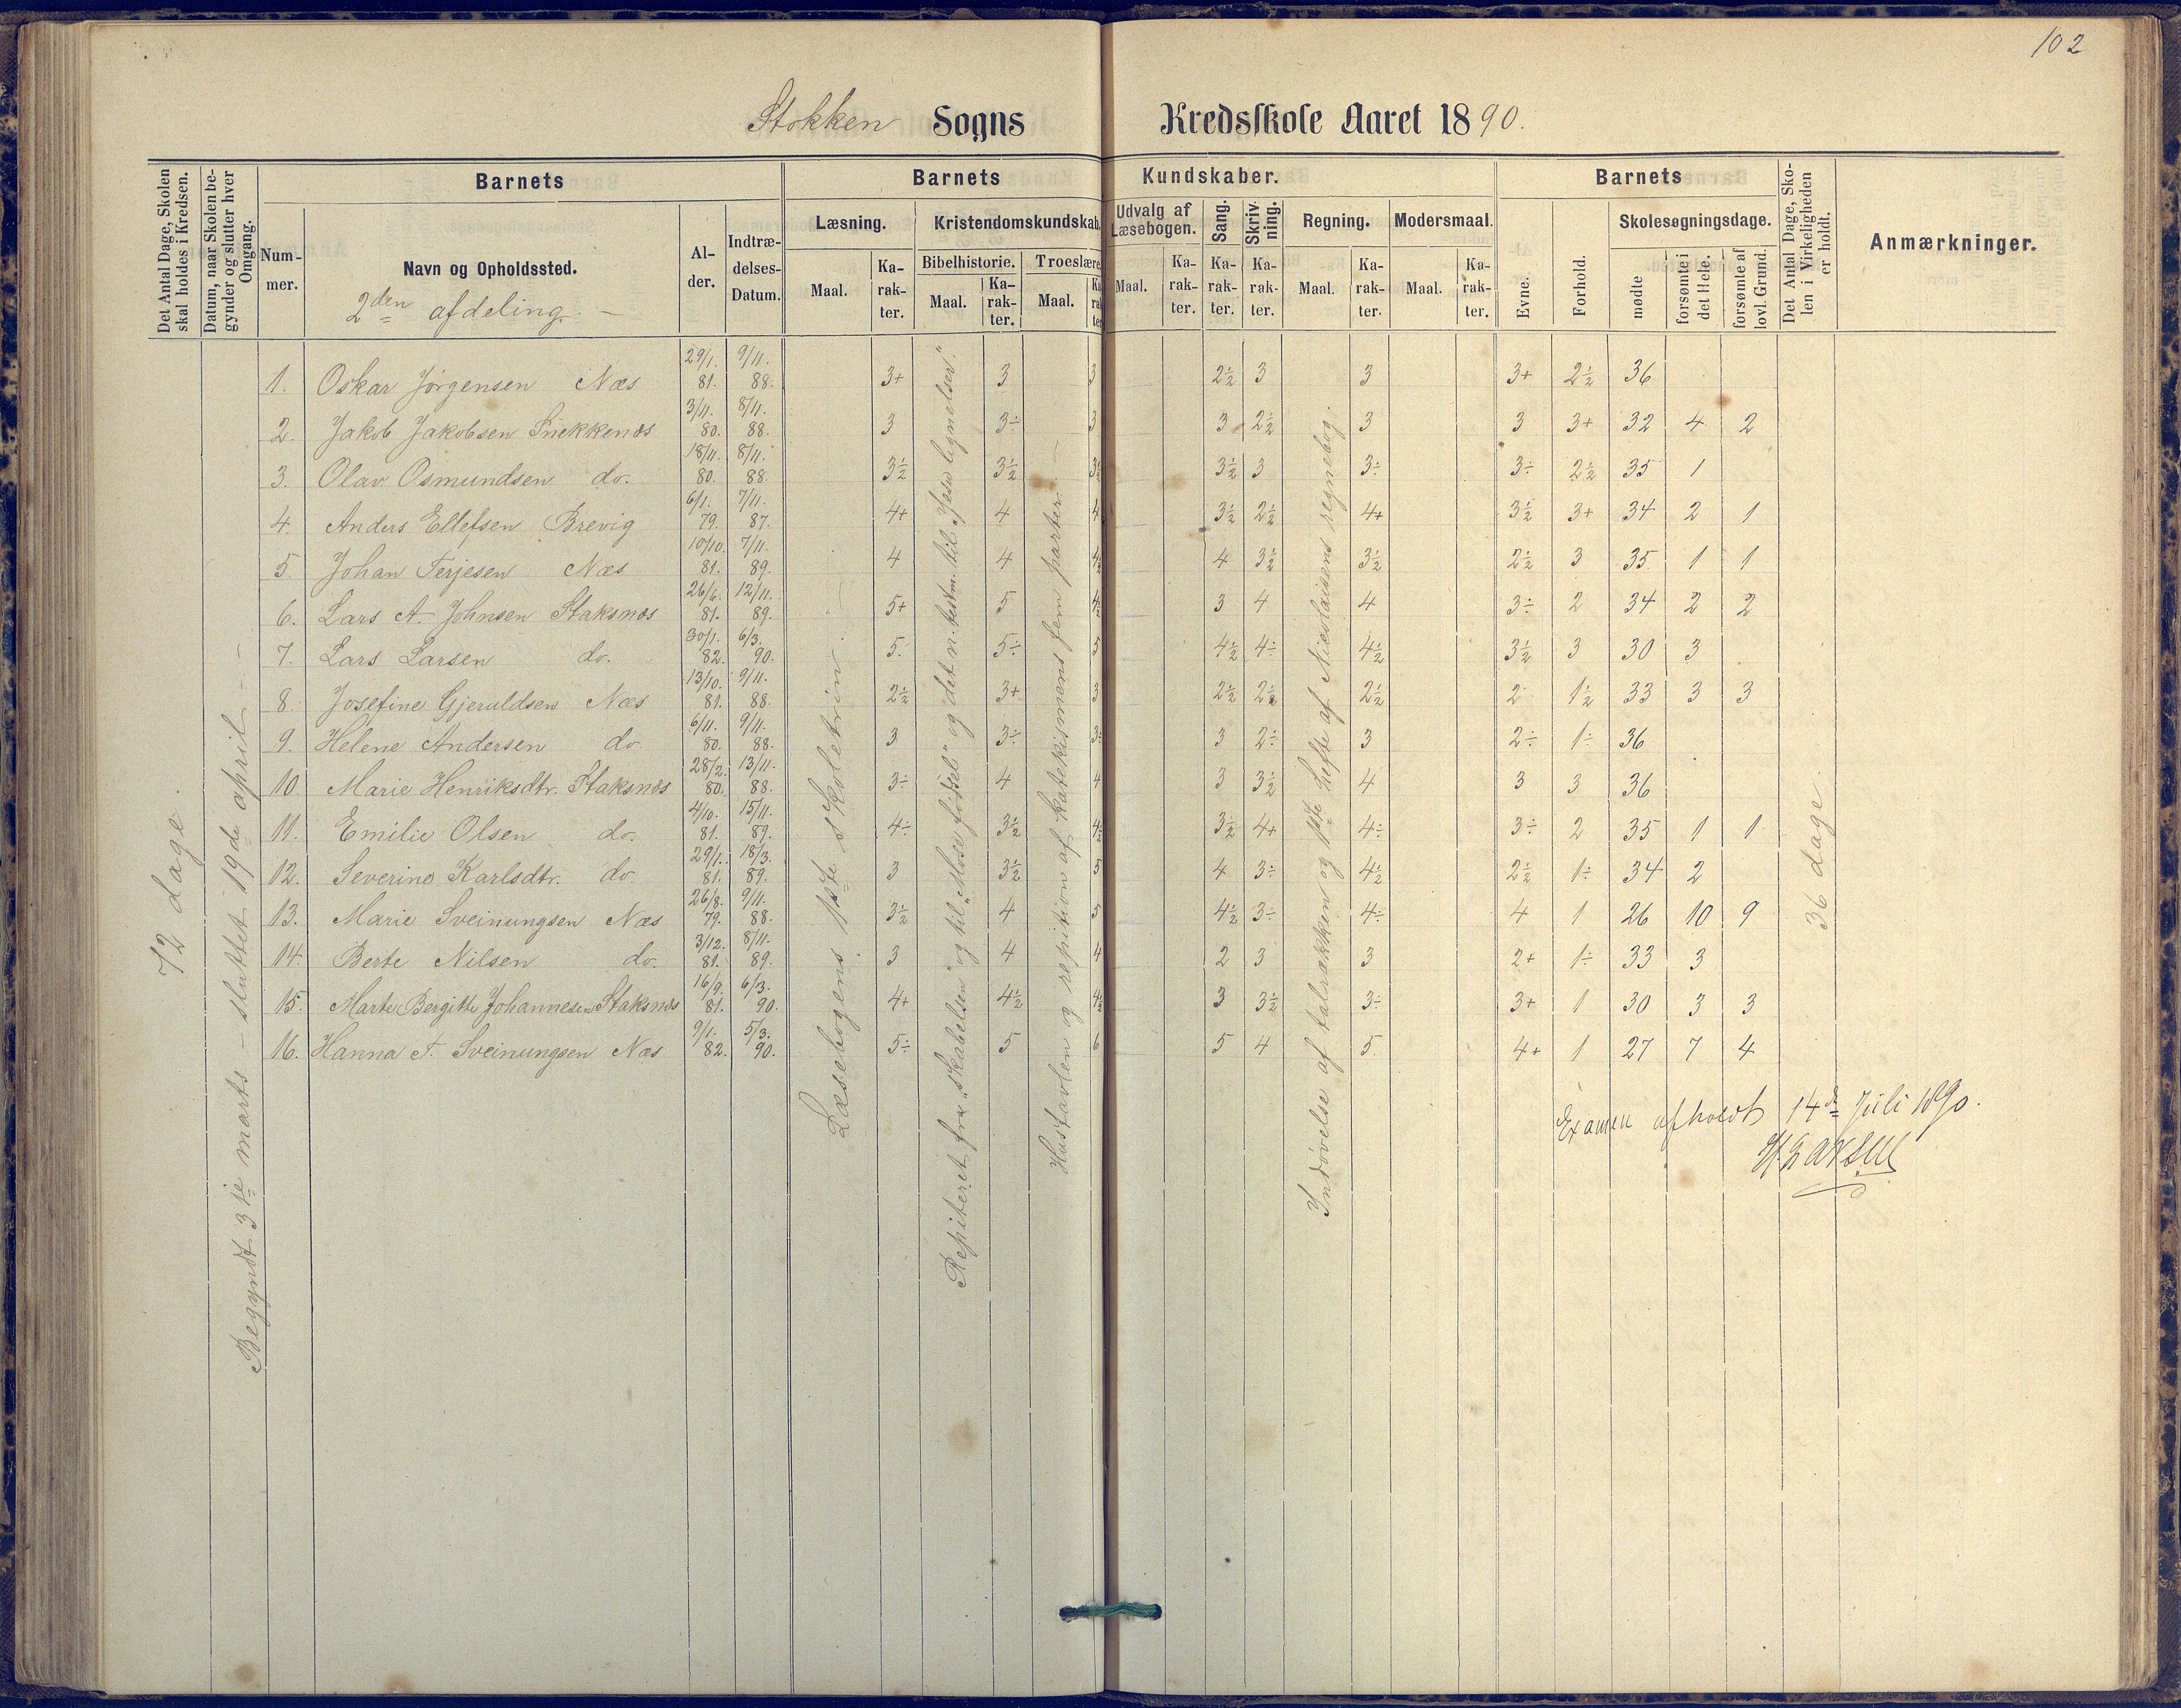 102
Stokken Sogns Kredsskole Aaret 1890.
Det Antal Dage, Skolen skal holdes i Kredsen.
Datum, naar Skolen begynder og slutter hver Omgang.
Barnets
Nummer.
Navn og Opholdssted.
2den afdeling. –
Alder.
Indtrædelses-Datum.
Barnets Kundskaber.
Læsning.
Maal.
Karakter.
Kristendomskundskab.
Bibelhistorie.
Maal.
Karakter.
Troeslære.
Maal.
Karakter
Udvalg af Læsebogen.
Maal.
Karakter.
Sang.
Karakter.
Skrivning.
Karakter.
Regning.
Maal.
Karakter.
Modersmaal.
Maal.
Karakter.
Barnets
Evne.
Forhold.
Skolesøgningsdage.
mødte
forsømte i det Hele.
forsømte af lovl. Grund.
Det Antal Dage, Skolen i Virkeligheden er holdt.
Anmærkninger.
72 dage.
Begyndt 3die marts – sluttet 19de april –
1. Oskar Jørgensen Næs 29/1. 81. 9/11. 88. 3+ 3 3 2½ 3 3 3+ 2½ 36
2. Jakob Jakobsen Snekkenæs 3/11. 80. 8/11. 88. 3 3÷ 3 3 2½ 3 3 3+ 32 4 2
3. Olav Osmundsen do. 18/11. 80. 8/11. 88. 3½ 3½ 3½ 3½ 3 3÷ 3÷ 2½ 35 1
4. Anders Ellefsen Brevig 6/1. 79. 7/11. 87. 4+ 4 4 3½ 2½ 4+ 3½ 3+ 34 2 1
5. Johan Terjesen Næs 10/10. 81. 7/11. 89. 4 4 4½ 4 3½ 3½ 2½ 3 35 1 1
6. Lars A. Johnsen Staksnæs 26/6. 81. 12/11. 89. 5+ 5 4½ 3 4 4 3÷ 2 34 2 2
7. Lars Larsen do. 30/1. 82. 6/3. 90. 5. 5÷ 5 4½ 4÷ 4½ 3½ 3 30 3
8. Josefine Gjeruldsen Næs 13/10. 81. 9/11. 88. 2½ 3+ 3 2½ 2½ 2½ 2 1½ 33 3 3
9. Helene Andersen do. 6/11. 80. 9/11. 88. 3 3÷ 3÷ 3 2÷ 3 2÷ 1÷ 36
10. Marie Henriksdtr. Staksnæs 28/2. 80. 13/11. 88. 3÷ 4 4 3 3½ 4 3 3 36
11. Emilie Olsen do. 4/10. 81. 15/11. 89. 4÷ 3½ 4½ 3½ 4+ 4÷ 3÷ 2 35 1 1
12. Severine Karlsdtr. do. 29/1. 81. 18/3. 89. 3 3½ 5 4 3÷ 4½ 2½ 1÷ 34 2
13. Marie Sveinungsen Næs 26/8. 79. 9/11. 88. 3½ 4 5 4½ 3÷ 4÷ 4 1 26 10 9
14. Berte Nilsen do. 3/12. 81. 8/11. 89. 3 4 4 2 3 3 2+ 1÷ 33 3
15. Marte Bergitte Johannesen Staksnæs 16/9. 81. 6/3. 90. 4+ 4½ 4½ 3 3½ 3÷ 3+ 1 30 3 3
16. Hanna T. Sveinungsen Næs 9/1. 82. 5/3. 90. 5÷ 5 6 5 4 5. 4+ 1 27 7 4
Læsebogens 1ste skoletrin. –
Repiteret fra „skabelsen" og til „Mose fødsel" og det n. testm. til „Jesu lignelser".
Hustavlen og repitition af katekismens fem parter. –
Indøvelse af talrækken og 1ste hefte af Nicolaisens regnebog.
36 dage.
Examen afholdt 14de Juli 1890.